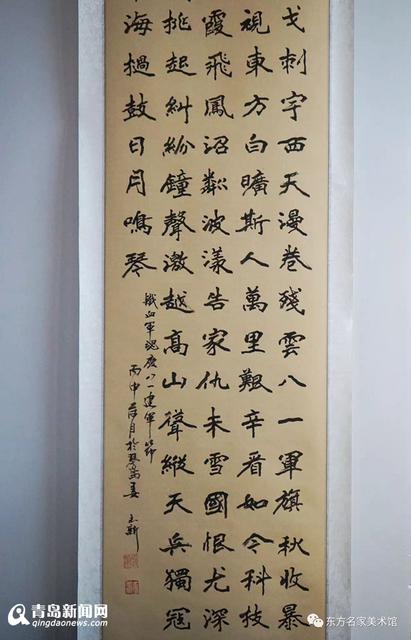 戈刺宇西天漫卷殘雲八一軍旗秋收暴
視東方白曠斯人萬里艱辛看如今科技
霞飛鳳沼粼波漾告家仇未雪國恨尤深
挑起糾紛鐘聲激越高山聳縱天兵獨冠
海撾鼓日月鳴琴
鐵血軍魂慶八一建軍節
丙申荷月於琴島姜
青岛新闻网
qingdaonews.com
东方名家美术馆